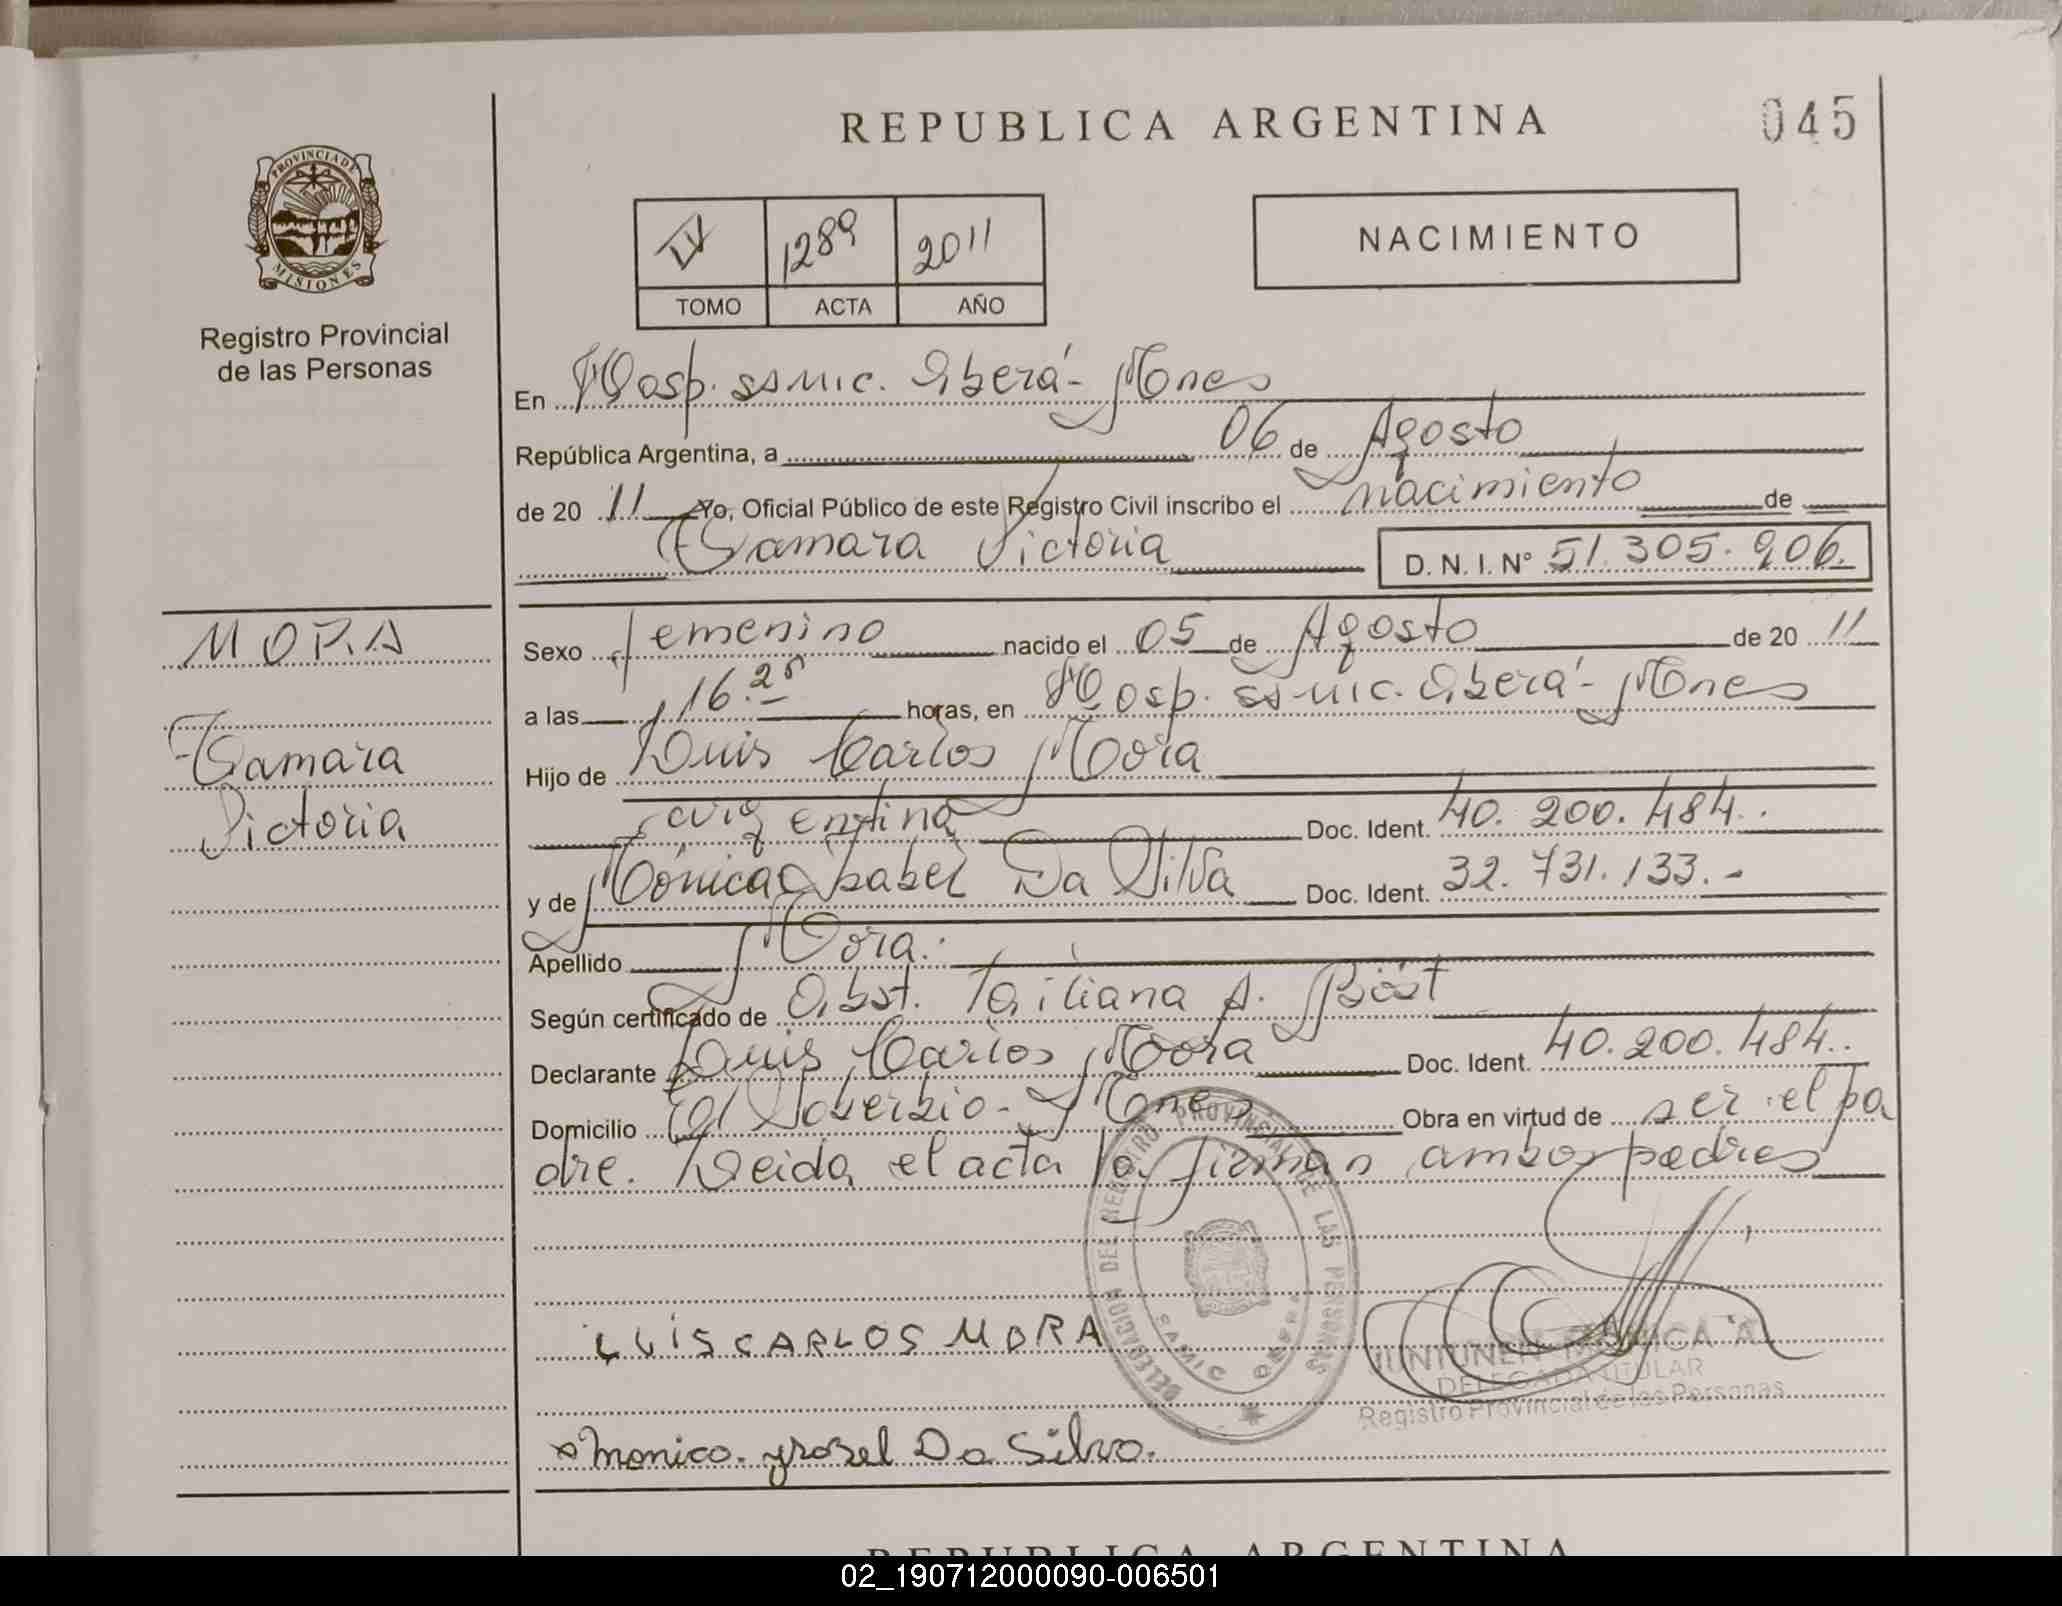 REPUBLICA ARGENTINA
045
PROVINCIA DE
MISIONES
Registro Provincial
de las Personas
IV 1289 2011
TOMO ACTA AÑO
NACIMIENTO
En Hosp. ssmic. Oberá - Mnes
República Argentina, a 06 de Agosto
de 20 11 Yo, Oficial Público de este Registro Civil inscribo el nacimiento de
Tamara Victoria D. N. I. Nº 51.305.906.
MORA
Tamara
Victoria
Sexo femenino nacido el 05 de Agosto de 20 11
a las 16.25 horas, en Hosp. ssmic. Oberá - Mnes
Hijo de Luis Carlos Mora
argentina Doc. Ident. 40.200.484.
y de Mónica Isabel Da Silva Doc. Ident. 32.731.133.-
Apellido Mora.
Según certificado de Obst. Tatiana A. Böst
Declarante Luis Carlos Mora Doc. Ident. 40.200.484.
Domicilio Col Soberbio - Mnes Obra en virtud de ser el pa
dre. Leida el acta la firman ambos padres
DELEGACION DEL REGISTRO PROVINCIAL DE LAS PERSONAS
SAMIC OBERA
LUIS CARLOS MORA
JUNTUNEN MONICA A
DELEGADA TITULAR
Registro Provincial de las Personas
Monica Ysabel Da Silva.
REPUBLICA ARGENTINA
02_190712000090-006501